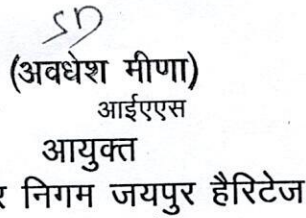 SD
(अवधेश मीणा)
आईएएस
आयुक्त
निगम जयपुर हैरिटेज